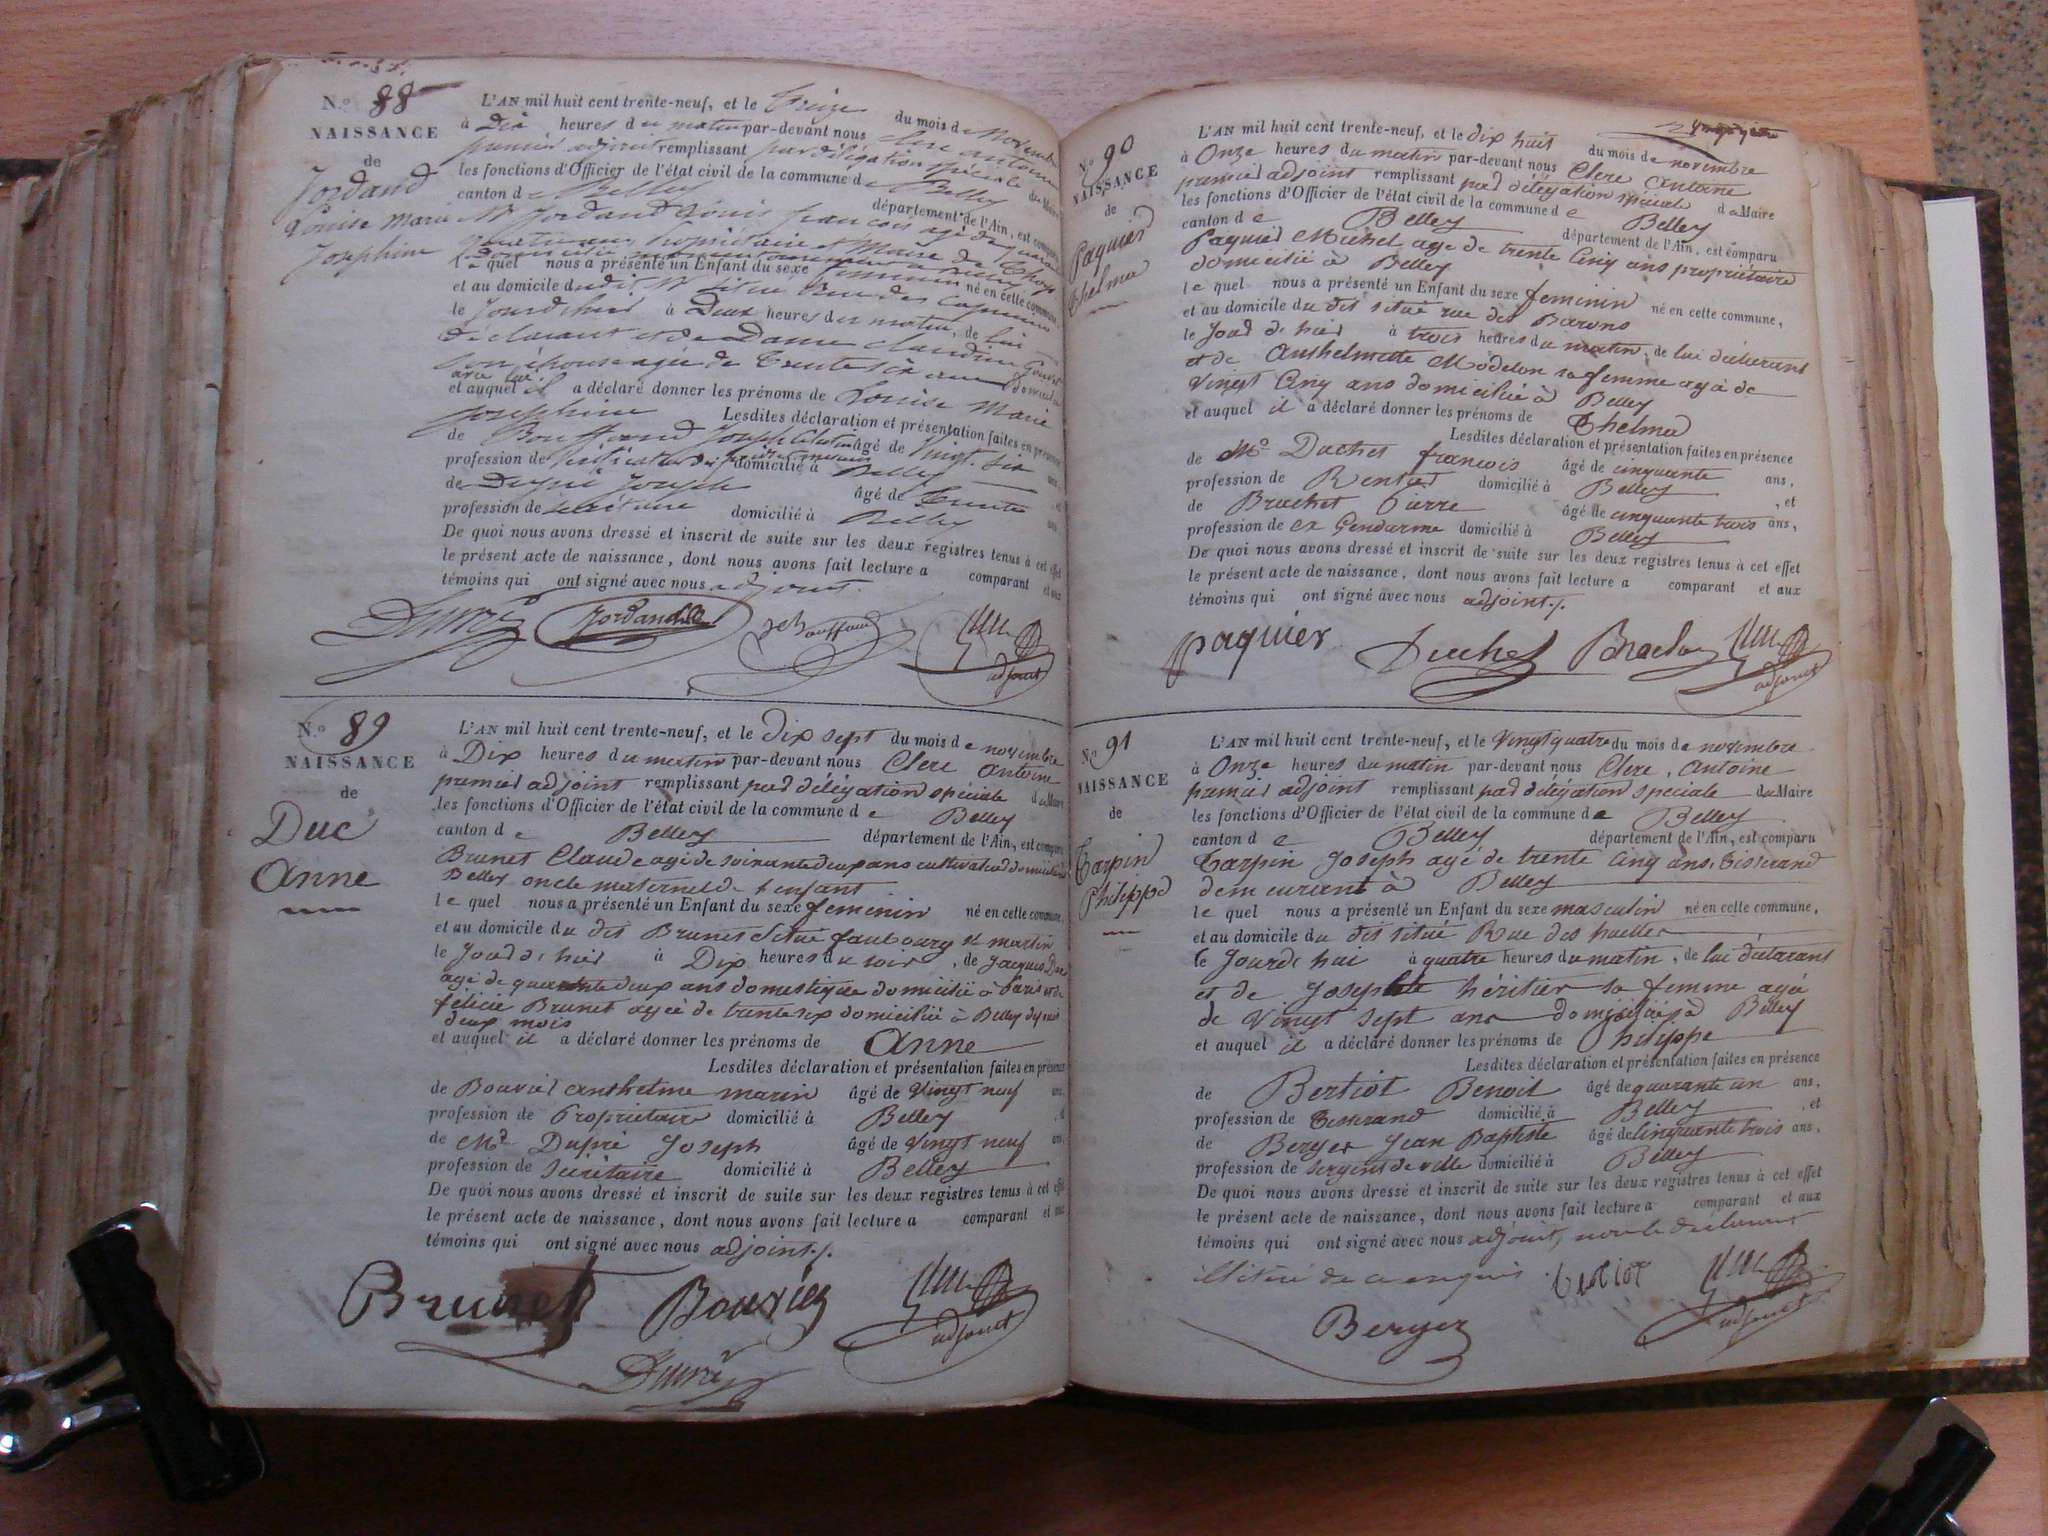 N.o 88
NAISSANCE
de
Jordand
Louise Marie
Josephine
L'AN mil huit cent trente-neuf, et le treize du mois de Novembre
à Dix heures du matin par-devant nous Clerc antoine
premier adjoint remplissant par délégation spéciale du Maire
les fonctions d'Officier de l'état civil de la commune de Belley
canton de Belley département de l'Ain, est comparu
Mr Jordand Louis françois agé de quarante
quatre ans, Propriétaire et Maire de
le quel nous a présenté un Enfant du sexe feminin né en cette commune,
et au domicile du dit Mr situé Rue des Capucins
le Jour d'hier à Deux heures du matin, de lui
déclarant et de Dame Claudine
son épouse agée de Trente six ans domiciliée
avec lui
et auquel il a déclaré donner les prénoms de Louise Marie
Josephine Lesdites déclaration et présentation faites en présence
de Bouffand Joseph âgé de Vingt six ans,
profession de domicilié à Belley
de Dupré Joseph âgé de Trente
profession de sécrétaire domicilié à Belley
De quoi nous avons dressé et inscrit de suite sur les deux registres tenus à cet effet
le présent acte de naissance, dont nous avons fait lecture a comparant et aux
témoins qui ont signé avec nous adjoint.
Dupré Jordand Bouffand adjoint
N.o 89
NAISSANCE
de
Duc
Anne
L'AN mil huit cent trente-neuf, et le Dix sept du mois de novembre
à Dix heures du matin par-devant nous Clerc Antoine
premier adjoint remplissant par délégation spéciale du Maire
les fonctions d'Officier de l'état civil de la commune de Belley
canton de Belley département de l'Ain, est comparu
Brunet Claude agé de soixante deux ans cultivateur domicilié à
Belley oncle maternel de l'enfant
le quel nous a présenté un Enfant du sexe feminin né en cette commune,
et au domicile du dit Brunet situé faubourg st martin
le Jour d'hier à Dix heures du soir, de Jacques Duc
agé de quarante deux ans domestique domicilié à Paris et de
félicie Brunet agée de trente six domicilié à Belley depuis
deux mois
et auquel il a déclaré donner les prénoms de Anne
Lesdites déclaration et présentation faites en présence
de Bouvier anthelme marin âgé de Vingt neuf ans,
profession de Propriétaire domicilié à Belley
de Mr Dupré Joseph âgé de Vingt neuf ans,
profession de sécrétaire domicilié à Belley
De quoi nous avons dressé et inscrit de suite sur les deux registres tenus à cet effet
le présent acte de naissance, dont nous avons fait lecture a comparant et aux
témoins qui ont signé avec nous adjoint./.
Brunet Bouvier adjoint
Dupré
N.o 90
NAISSANCE
de
Paquier
Thelma
L'AN mil huit cent trente-neuf, et le dix huit du mois de novembre
à Onze heures du matin par-devant nous Clerc Antoine
premier adjoint remplissant par délégation spéciale du Maire
les fonctions d'Officier de l'état civil de la commune de Belley
canton de Belley département de l'Ain, est comparu
Paquier Michel age de trente Cinq ans propriétaire
domicilié à Belley
le quel nous a présenté un Enfant du sexe feminin né en cette commune,
et au domicile du dit situé rue des Barons
le Jour de hier à trois heures du matin, de lui déclarant
et de Anthelmette Modelon sa femme agé de
Vingt Cinq ans domicilié à Belley
et auquel il a déclaré donner les prénoms de Thelma
Lesdites déclaration et présentation faites en présence
de Mr Duchet françois âgé de cinquante ans,
profession de Rentier domicilié à Belley, et
de Brachet Pierre âgé de cinquante trois ans,
profession de ex Gendarme domicilié à Belley
De quoi nous avons dressé et inscrit de suite sur les deux registres tenus à cet effet
le présent acte de naissance, dont nous avons fait lecture a comparant et aux
témoins qui ont signé avec nous adjoint./.
paquier Duchet Brachet adjoint
No 91
NAISSANCE
de
Tarpin
Philippe
L'AN mil huit cent trente-neuf, et le Vingt quatre du mois de novembre
à Onze heures du matin par-devant nous Clerc, Antoine
premier adjoint remplissant par délégation speciale du Maire
les fonctions d'Officier de l'état civil de la commune de Belley
canton de Belley département de l'Ain, est comparu
Tarpin Joseph agé de trente Cinq ans, Tisserand
demeurant à Belley
le quel nous a présenté un Enfant du sexe masculin né en cette commune,
et au domicile du dit situé Rue des huelles
le Jour de hui à quatre heures du matin, de lui déclarant
et de Josephte héritier sa femme agé
de Vingt sept ans domiciliés à Belley
et auquel il a déclaré donner les prénoms de Philippe
Lesdites déclaration et présentation faites en présence
de Bertiot Benoit âgé de quarante un ans,
profession de Tisserand domicilié à Belley, et
de Berger Jean Baptiste âgé de Cinquante trois ans,
profession de sergent de ville domicilié à Belley
De quoi nous avons dressé et inscrit de suite sur les deux registres tenus à cet effet
le présent acte de naissance, dont nous avons fait lecture a comparant et aux
témoins qui ont signé avec nous adjoint, non le déclarant
illitéré de ce enquis. Bertiot adjoint
Berger